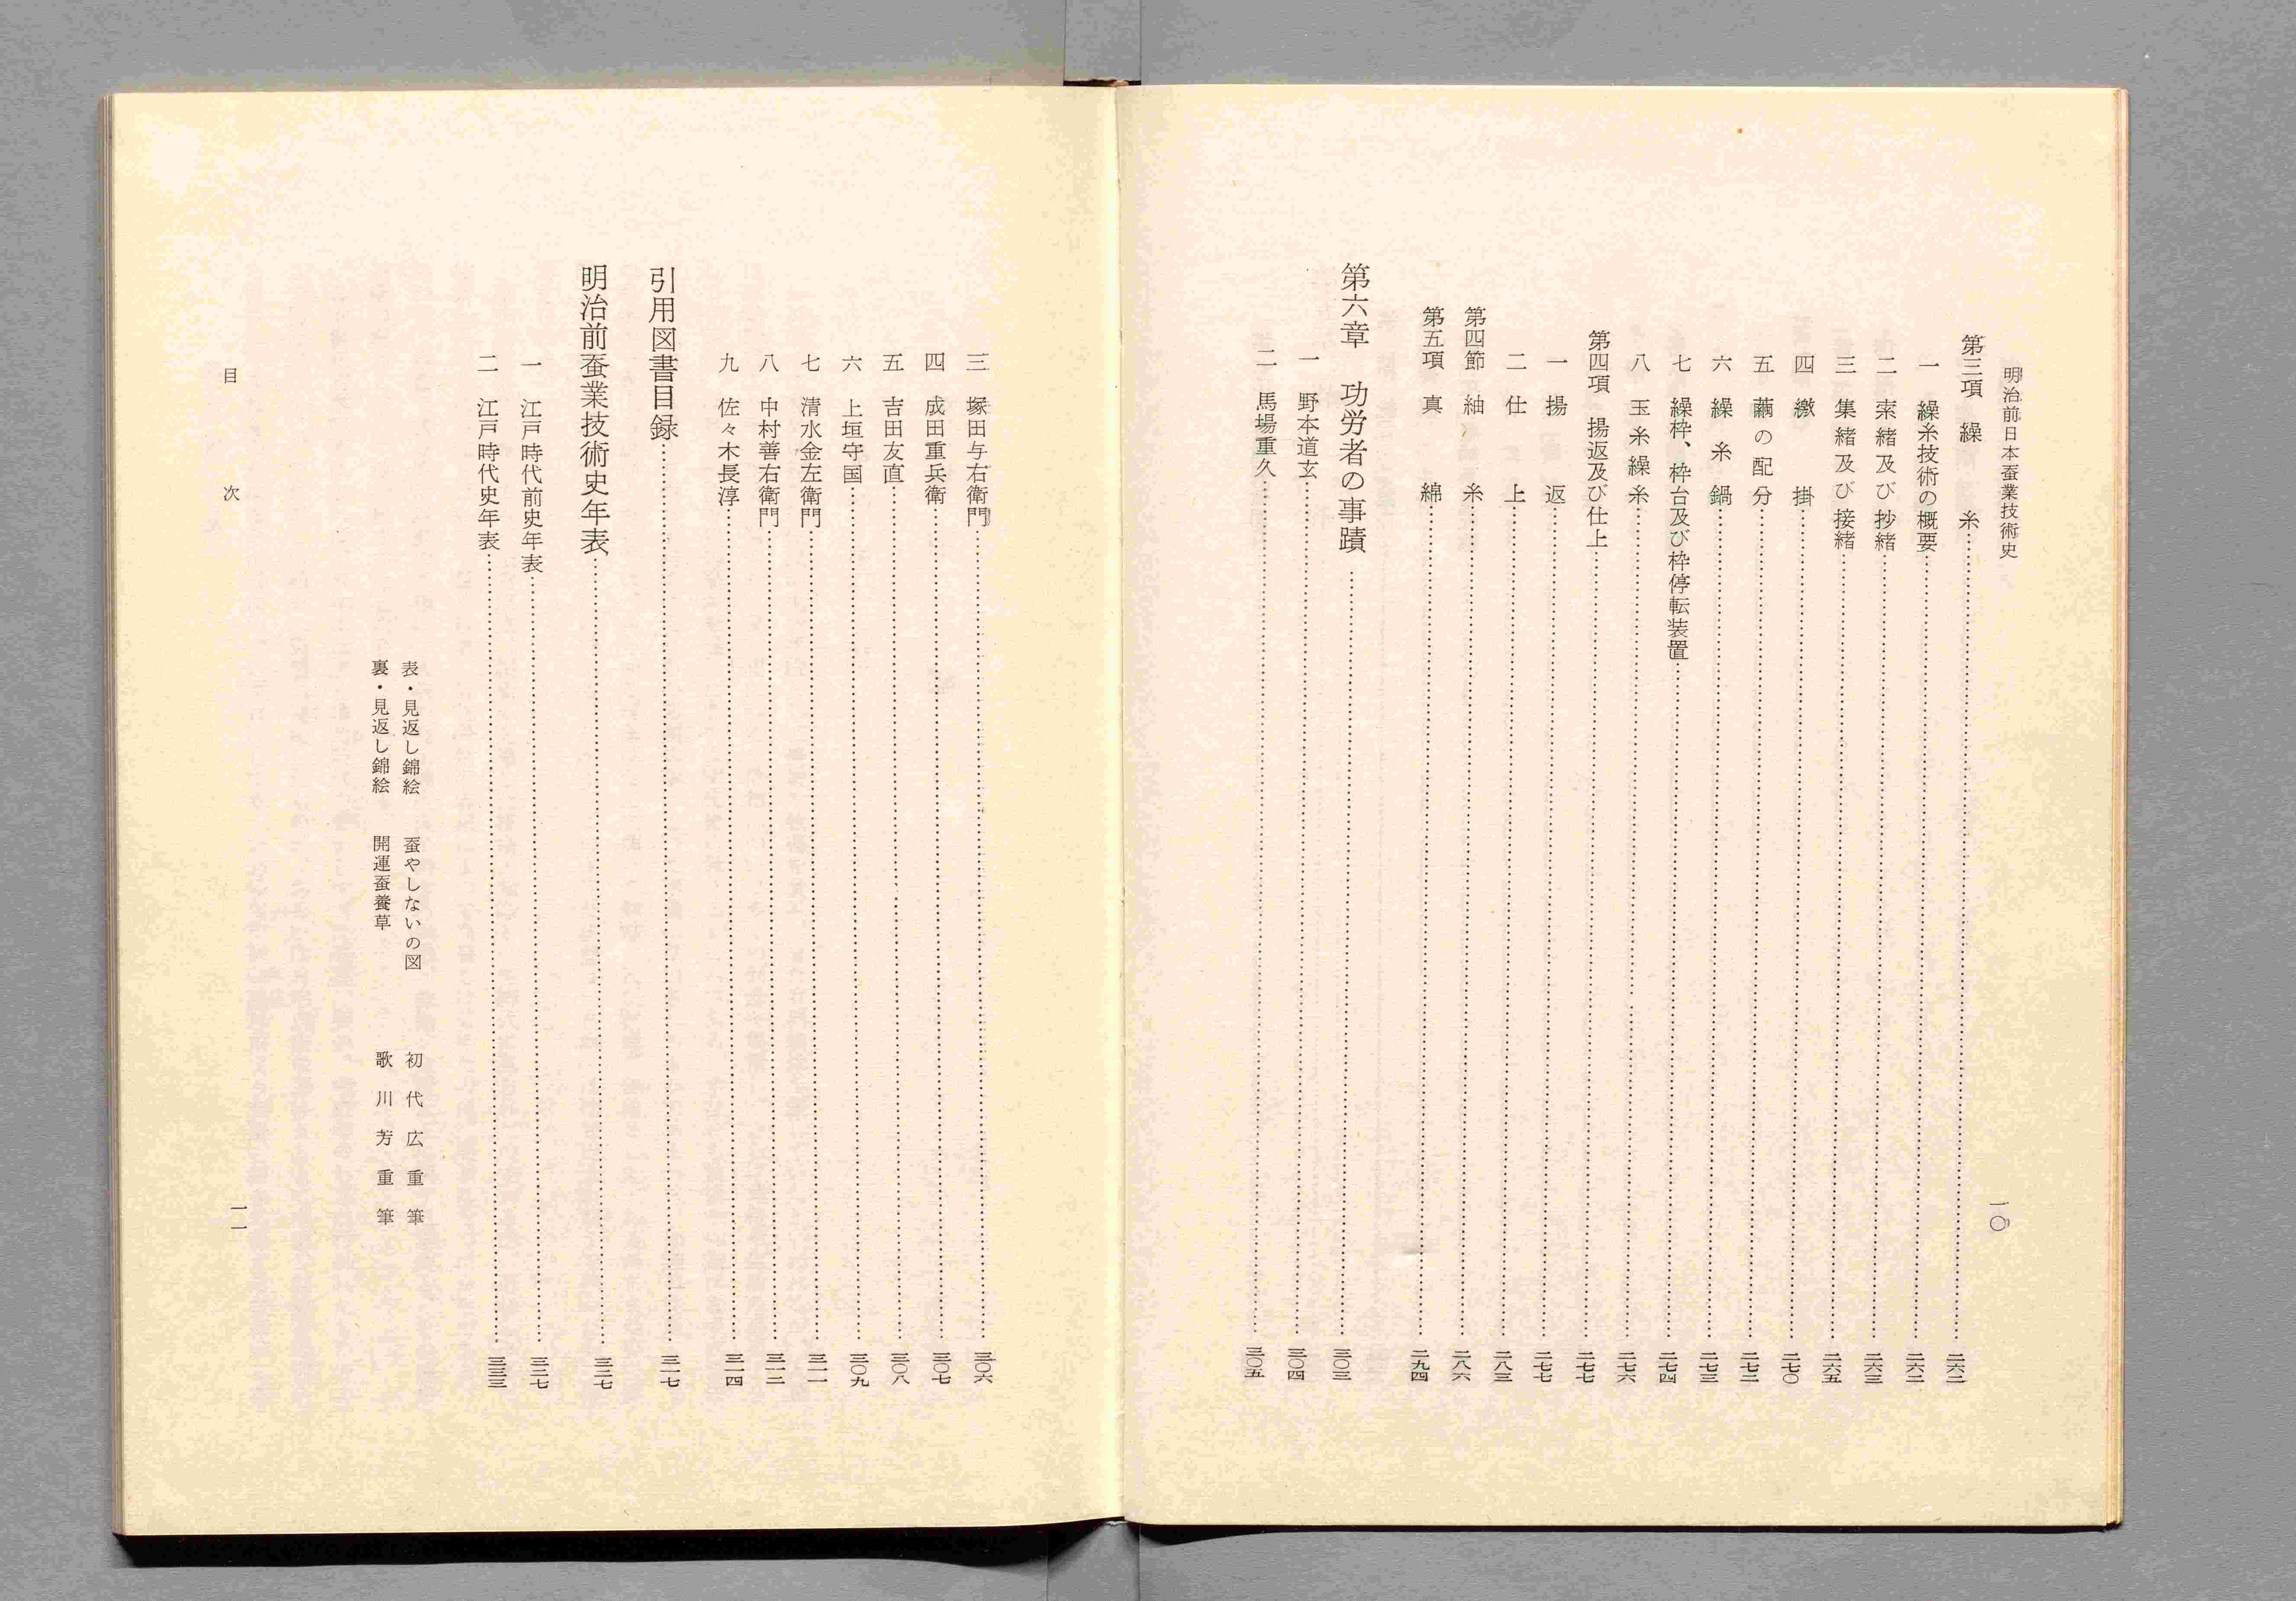 明治前日本蚕業技術史
一〇
第三項 繰糸……二六二
一 繰糸技術の概要……二六二
二 索緒及び抄緒……二六三
三 集緒及び接緒……二六五
四 繳掛……二七〇
五 繭の配分……二七二
六 繰糸鍋……二七三
七 繰枠、枠台及び枠停転装置……二七四
八 玉糸繰糸……二七六
第四項 揚返及び仕上……二七七
一 揚返……二七七
二 仕上……二八三
第四節 紬糸……二八六
第五項 真綿……二九四
第六章 功労者の事蹟……三〇三
一 野本道玄……三〇四
二 馬場重久……三〇五
三 塚田与右衛門……三〇六
四 成田重兵衛……三〇七
五 吉田友直……三〇八
六 上垣守国……三〇九
七 清水金左衛門……三一一
八 中村善右衛門……三一二
九 佐々木長淳……三一四
引用図書目録……三一七
明治前蚕業技術史年表……三二七
一 江戸時代前史年表……三二七
二 江戸時代史年表……三三三
表・見返し錦絵 蚕やしないの図 初代広重筆
裏・見返し錦絵 開運蚕養草 歌川芳重筆
目次
一一